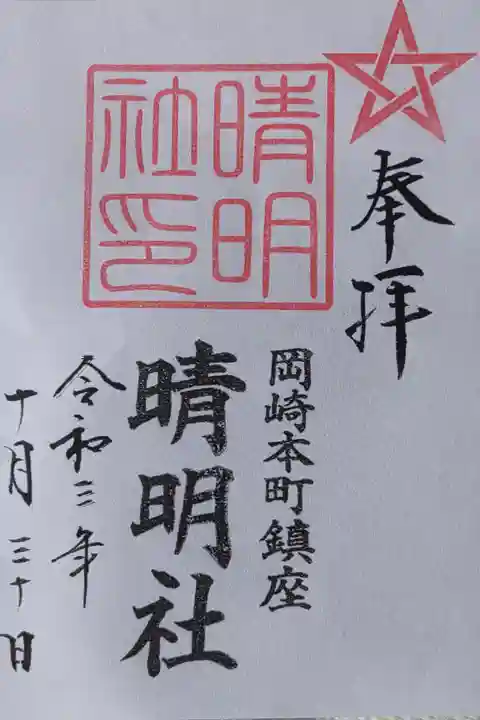 奉拝
岡崎本町鎮座
晴明社印
晴明社
令和三年
十月三十日